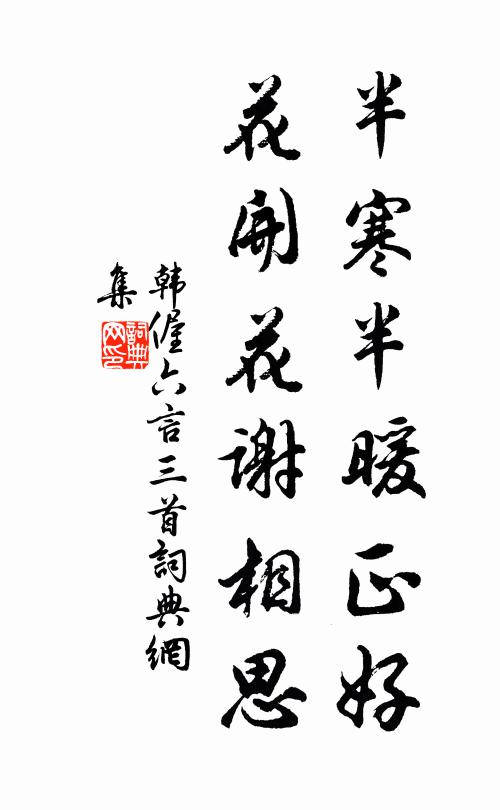 半寒半暖正好
花開花謝相思
韩偓六言三首詞典網
集
詞典网印